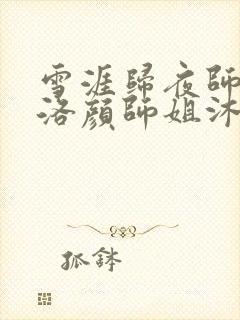 雪涯歸夜師
洛顏師姐沐
孤鉢